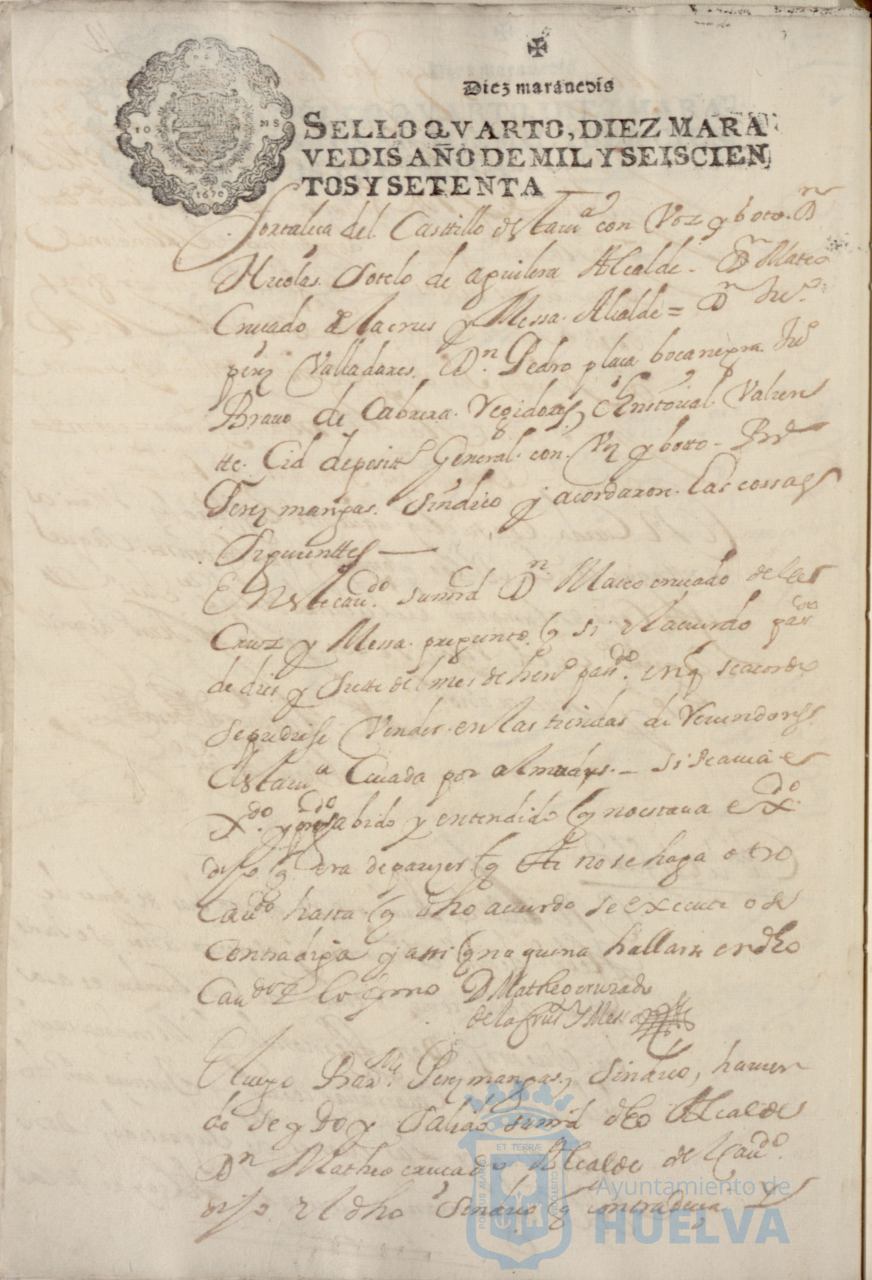 Diez maravedis
SELLO QVARTO, DIEZ MARA
VEDIS AÑO DE MIL Y SEISCIEN
TOS Y SETENTA
1670
fortaleca del Casttillo desta uª con Voz y boto. Dn
Nicolas Sotelo de aguilera Alcalde - Dn Mateo
Cruçado de la crus y Messa Alcalde = Dn Juº
perez Valladares. Dn. Pedro plaça bocanegra Juº
Brauo de Cabrera Regidores, Valien
tte Cid deposittº General con Voz y botto -
Perez mangas. Sindico y acordaron las cossas
Siguienttes —
En este cauᵈᵒ. sumrd Dn Mateo cruçado de la
Cruz y Messa pregunto q si el acuerdo
de dies y Siette del mes de henº pasᵈᵒ. en q se acordo
se pudiese Vender en las tiendas de Reuendores
desta uª Ceuada por almudes - si se auia e
Xᵈᵒ. y sabido y entendido q no estaua eXᵈᵒ
dijo q era de pareser q no se haga otro
Cauᵈᵒ hasta q dho acuerdo se execute o se
Contradiga y assi q no queria hallarse en dho
Cauᵈᵒ y lo firmo D Matheo cruzado
de la Crus Y Messa
E luego Perez mangas, Sindico, hauien
do se ydo y Salido sumrd dho Alcalde
Dn Matheo cruçado Alcalde del Cauᵈᵒ.
dijo el dho Sindico q contradecia
ET TERRÆ
Ayuntamiento de
HUELVA